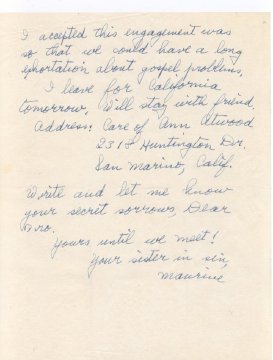 I accepted this engagement was
so that we could have a long
exhortation about gospel problems.
I leave for California
tomorrow, Will stay with friend.
Address: Care of Ann Atwood
Huntington Dr.
San Marino, Calif.
Write and let me know
your secret sorrows, Dear
Bro.
Yours until we meet!
Your sister in sin,
Maurine